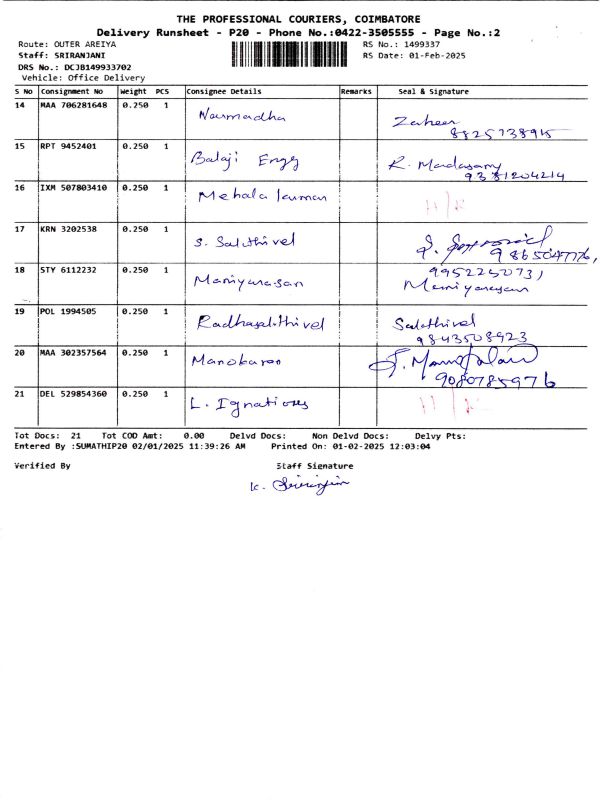 THE PROFESSIONAL COURIERS, COIMBATORE
Delivery Runsheet - P20 - Phone No.:0422-3505555 - Page No.:2
Route: OUTER AREIYA RS No.: 1499337
Staff: SRIRANJANI RS Date: 01-Feb-2025
DRS No.: DCJB149933702
Vehicle: Office Delivery
S No Consignment No Weight PCS Consignee Details Remarks Seal & Signature
14 MAA 706281648 0.250 1 Narmadha Zaheer
8825738915
15 RPT 9452401 0.250 1 Balaji Engg R. Madasamy
9381204214
16 IXM 507803410 0.250 1 Mehala kumar
17 KRN 3202538 0.250 1 S. Sakthivel
9865047776,
18 STY 6112232 0.250 1 Maniyarasan 9952250731
Maniyarasan
19 POL 1994505 0.250 1 Radhasakthivel Sakthivel
9843508923
20 MAA 302357564 0.250 1 Manoharan
9080785976
21 DEL 529854360 0.250 1 L. Ignatious
Tot Docs: 21 Tot COD Amt: 0.00 Delvd Docs: Non Delvd Docs: Delvy Pts:
Entered By :SUMATHIP20 02/01/2025 11:39:26 AM Printed On: 01-02-2025 12:03:04
Verified By Staff Signature